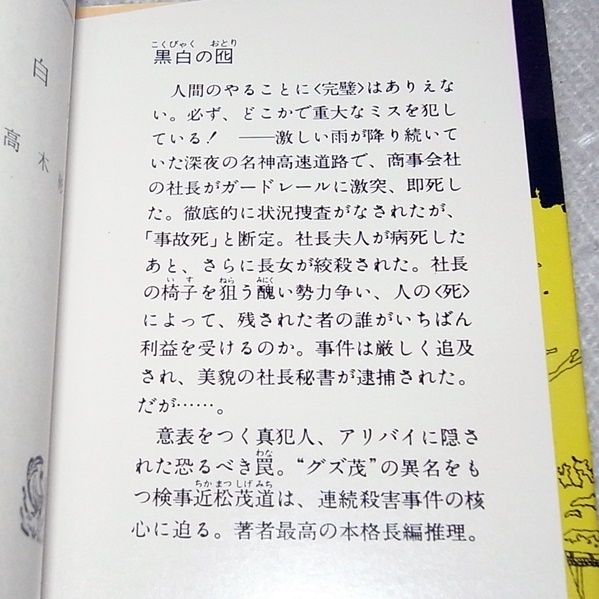 白
高木
こくびゃく おとり
黒白の囮
人間のやることに〈完璧〉はありえな
い。必ず、どこかで重大なミスを犯し
ている! ――激しい雨が降り続いて
いた深夜の名神高速道路で、商事会社
の社長がガードレールに激突、即死し
た。徹底的に状況捜査がなされたが、
「事故死」と断定。社長夫人が病死した
あと、さらに長女が絞殺された。社長
いす ねら みにく
の椅子を狙う醜い勢力争い、人の〈死〉
によって、残された者の誰がいちばん
利益を受けるのか。事件は厳しく追及
され、美貌の社長秘書が逮捕された。
だが……。
意表をつく真犯人、アリバイに隠さ
わな
れた恐るべき罠。“グズ茂”の異名をも
ちかまつしげみち
つ検事近松茂道は、連続殺害事件の核
心に迫る。著者最高の本格長編推理。